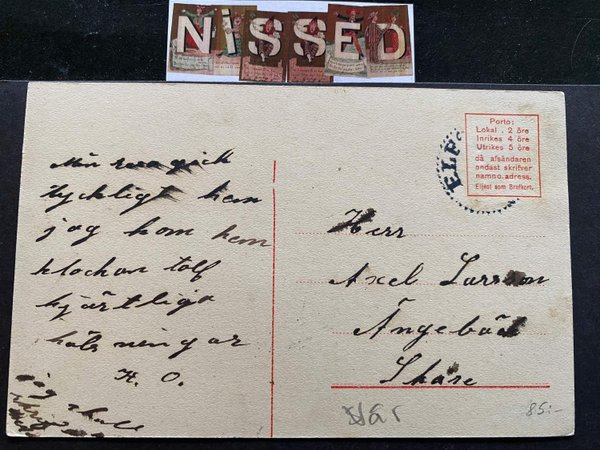 NISSED
Porto:
Lokal . 2 öre
Inrikes 4 öre
Utrikes 5 öre
då afsändaren
endast skrifver
namn o. adress.
Eljest som Brefkort.
ELFS
Min gick
lyckligt hem
jag kom hem
klockan tolf
hjärtliga
hälsningar
K. O.
jag skall
Herr
Axel Larsson
Ängebäck
Skåre
85:-